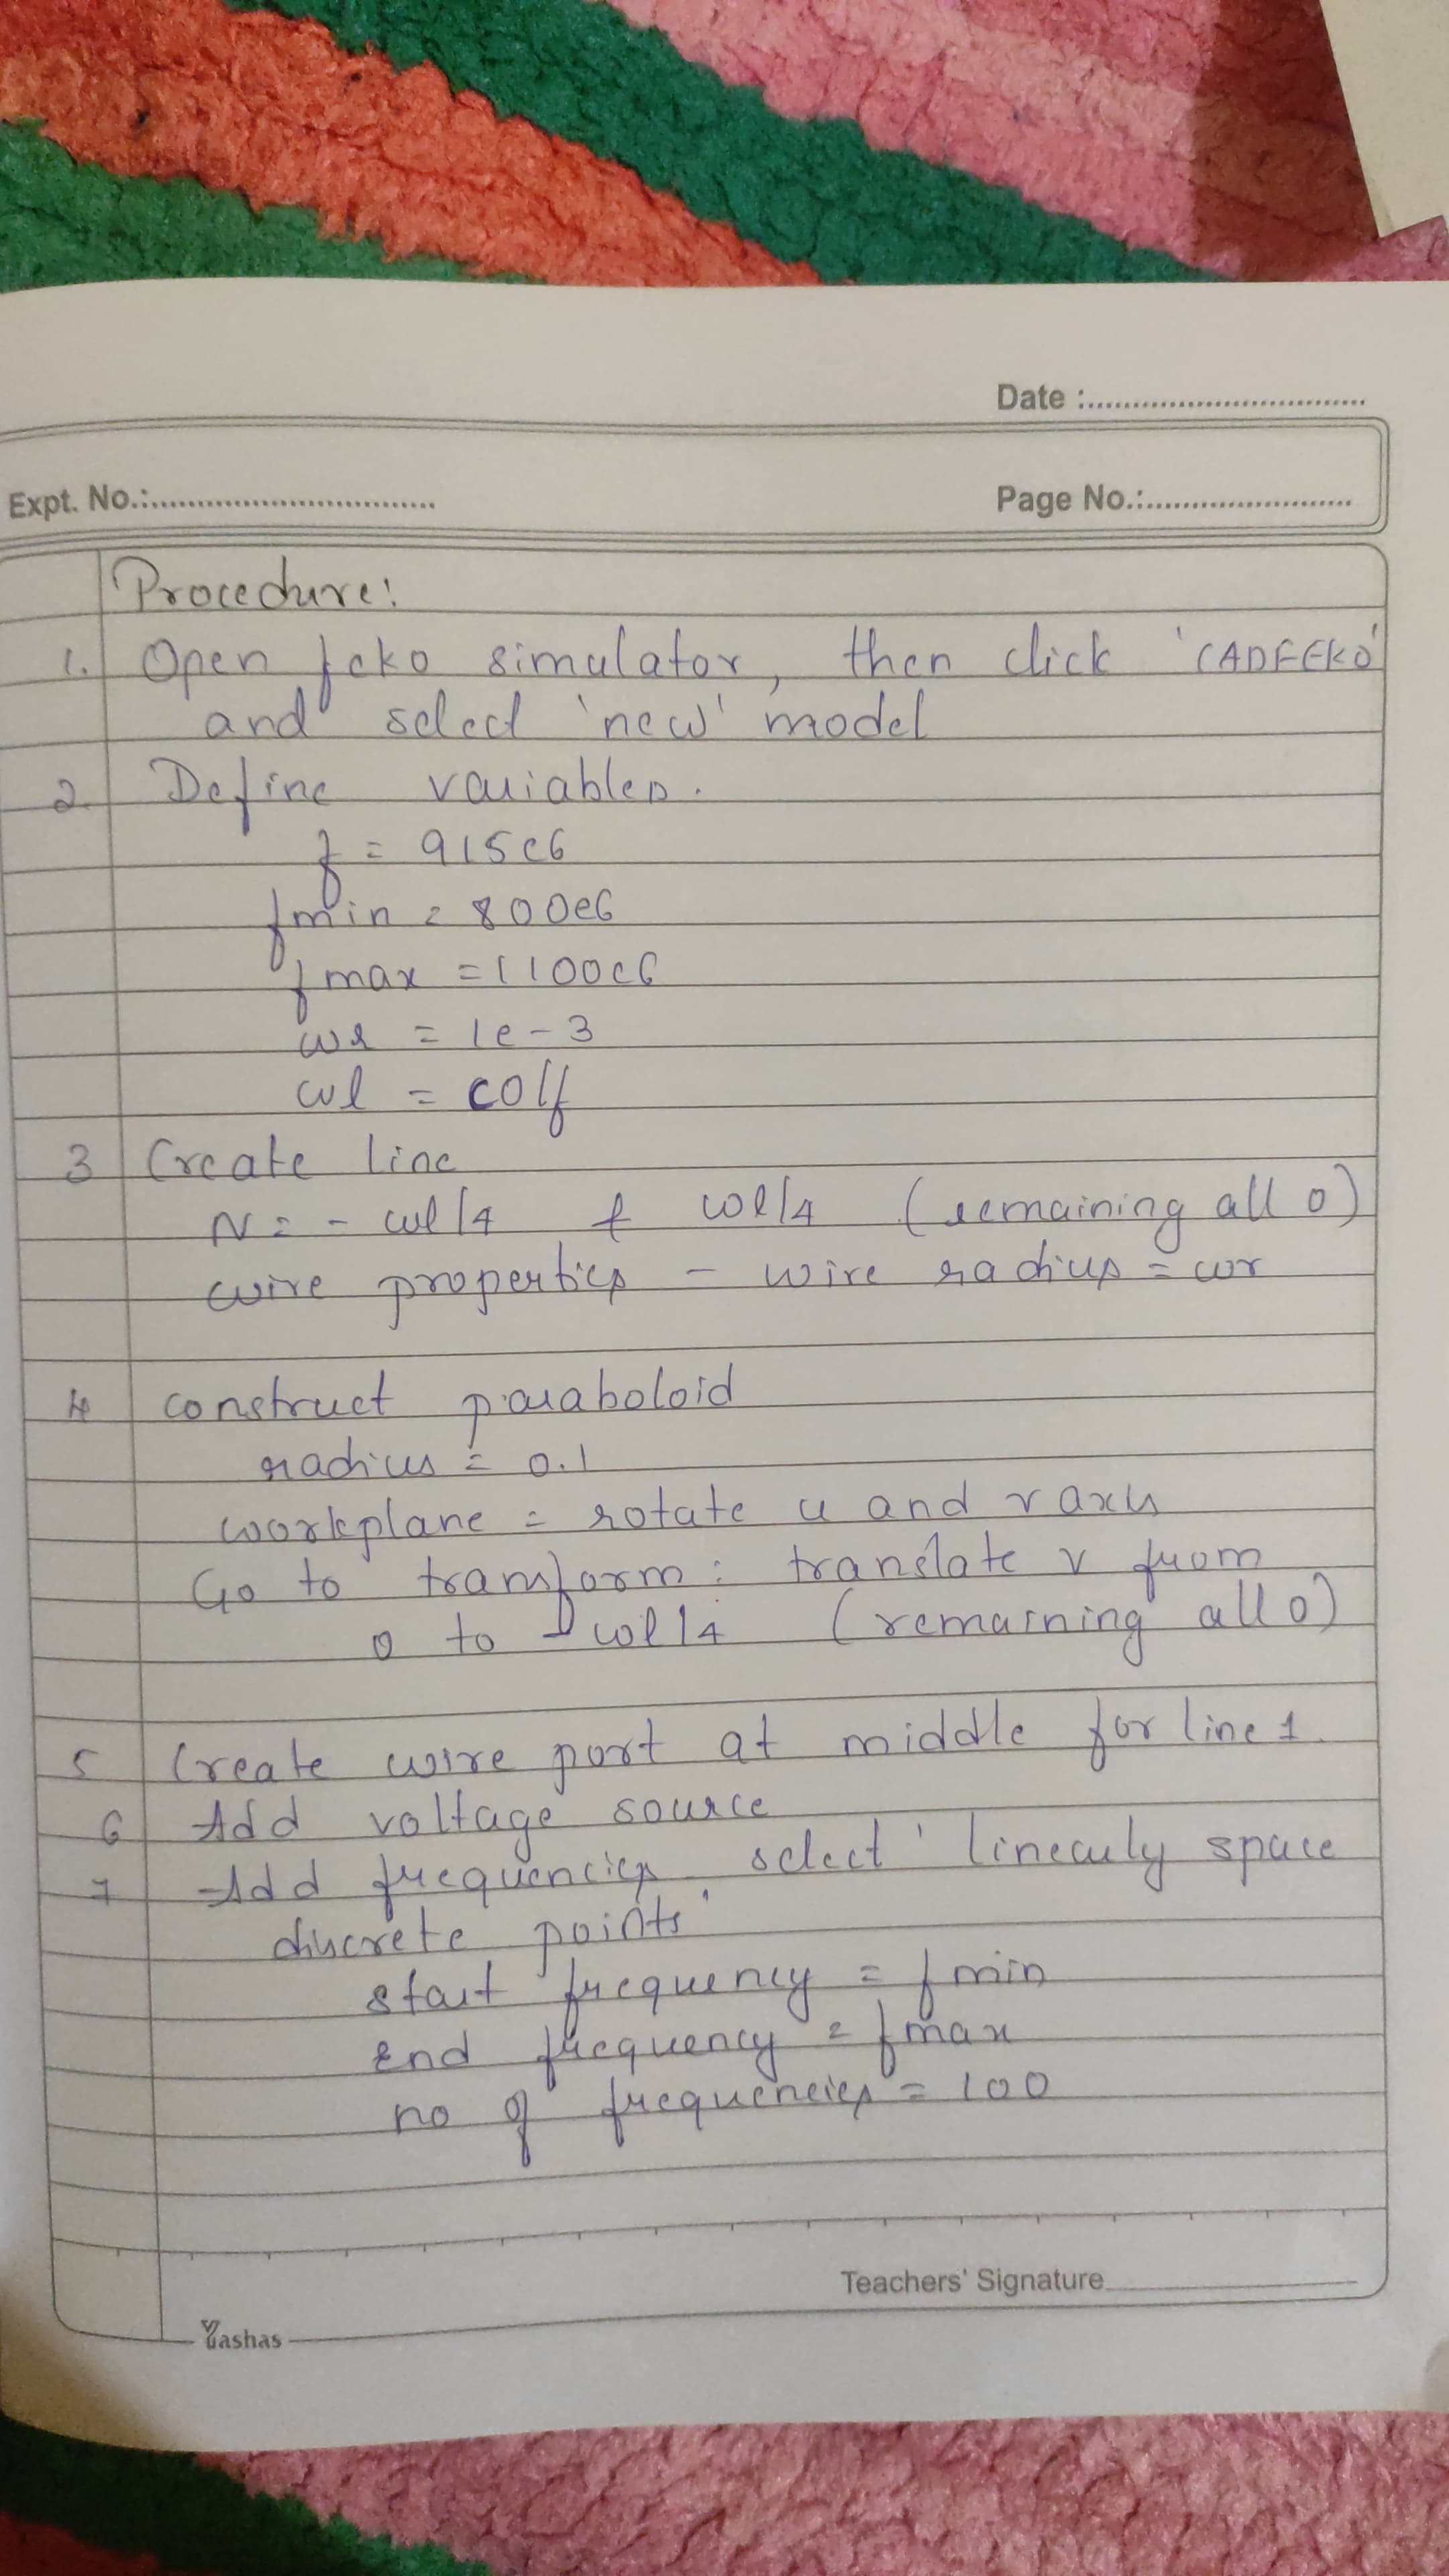 Date :
Expt. No.:
Page No.:
Procedure:
1. Open feko simulator, then click 'CADFEKO'
and select 'new' model
2. Define variables.
f = 915e6
fmin = 800e6
fmax = 1100e6
wr = 1e-3
wl = c0/f
3 Create line
N = - wl/4 & wl/4 (remaining all 0)
wire properties - wire radius = wr
4 construct paraboloid
radius = 0.1
workplane = rotate u and v axis
Go to transform : translate v from
0 to - wl/4 (remaining all 0)
5 Create wire port at middle for line 1.
6 Add voltage source
7 Add frequencies select 'linearly space
discrete points'
start frequency = fmin
End frequency = fmax
no of frequencies = 100
Teachers' Signature
Yashas